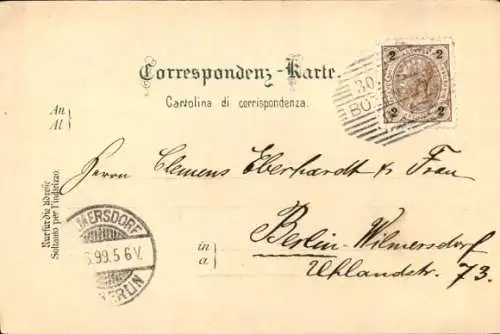 2 2
30.
BOZ
2 2
Correspondenz-Karte.
Cartolina di corrispondenza.
An
Al
Herrn Clemens Eberhardt & Frau
Nur für die Adresse.
Soltanto per l'indirizzo.
in
a
Berlin-Wilmersdorf
Uhlandstr. 73.
MERSDORF
5.99. 5 6 V.
BERLIN